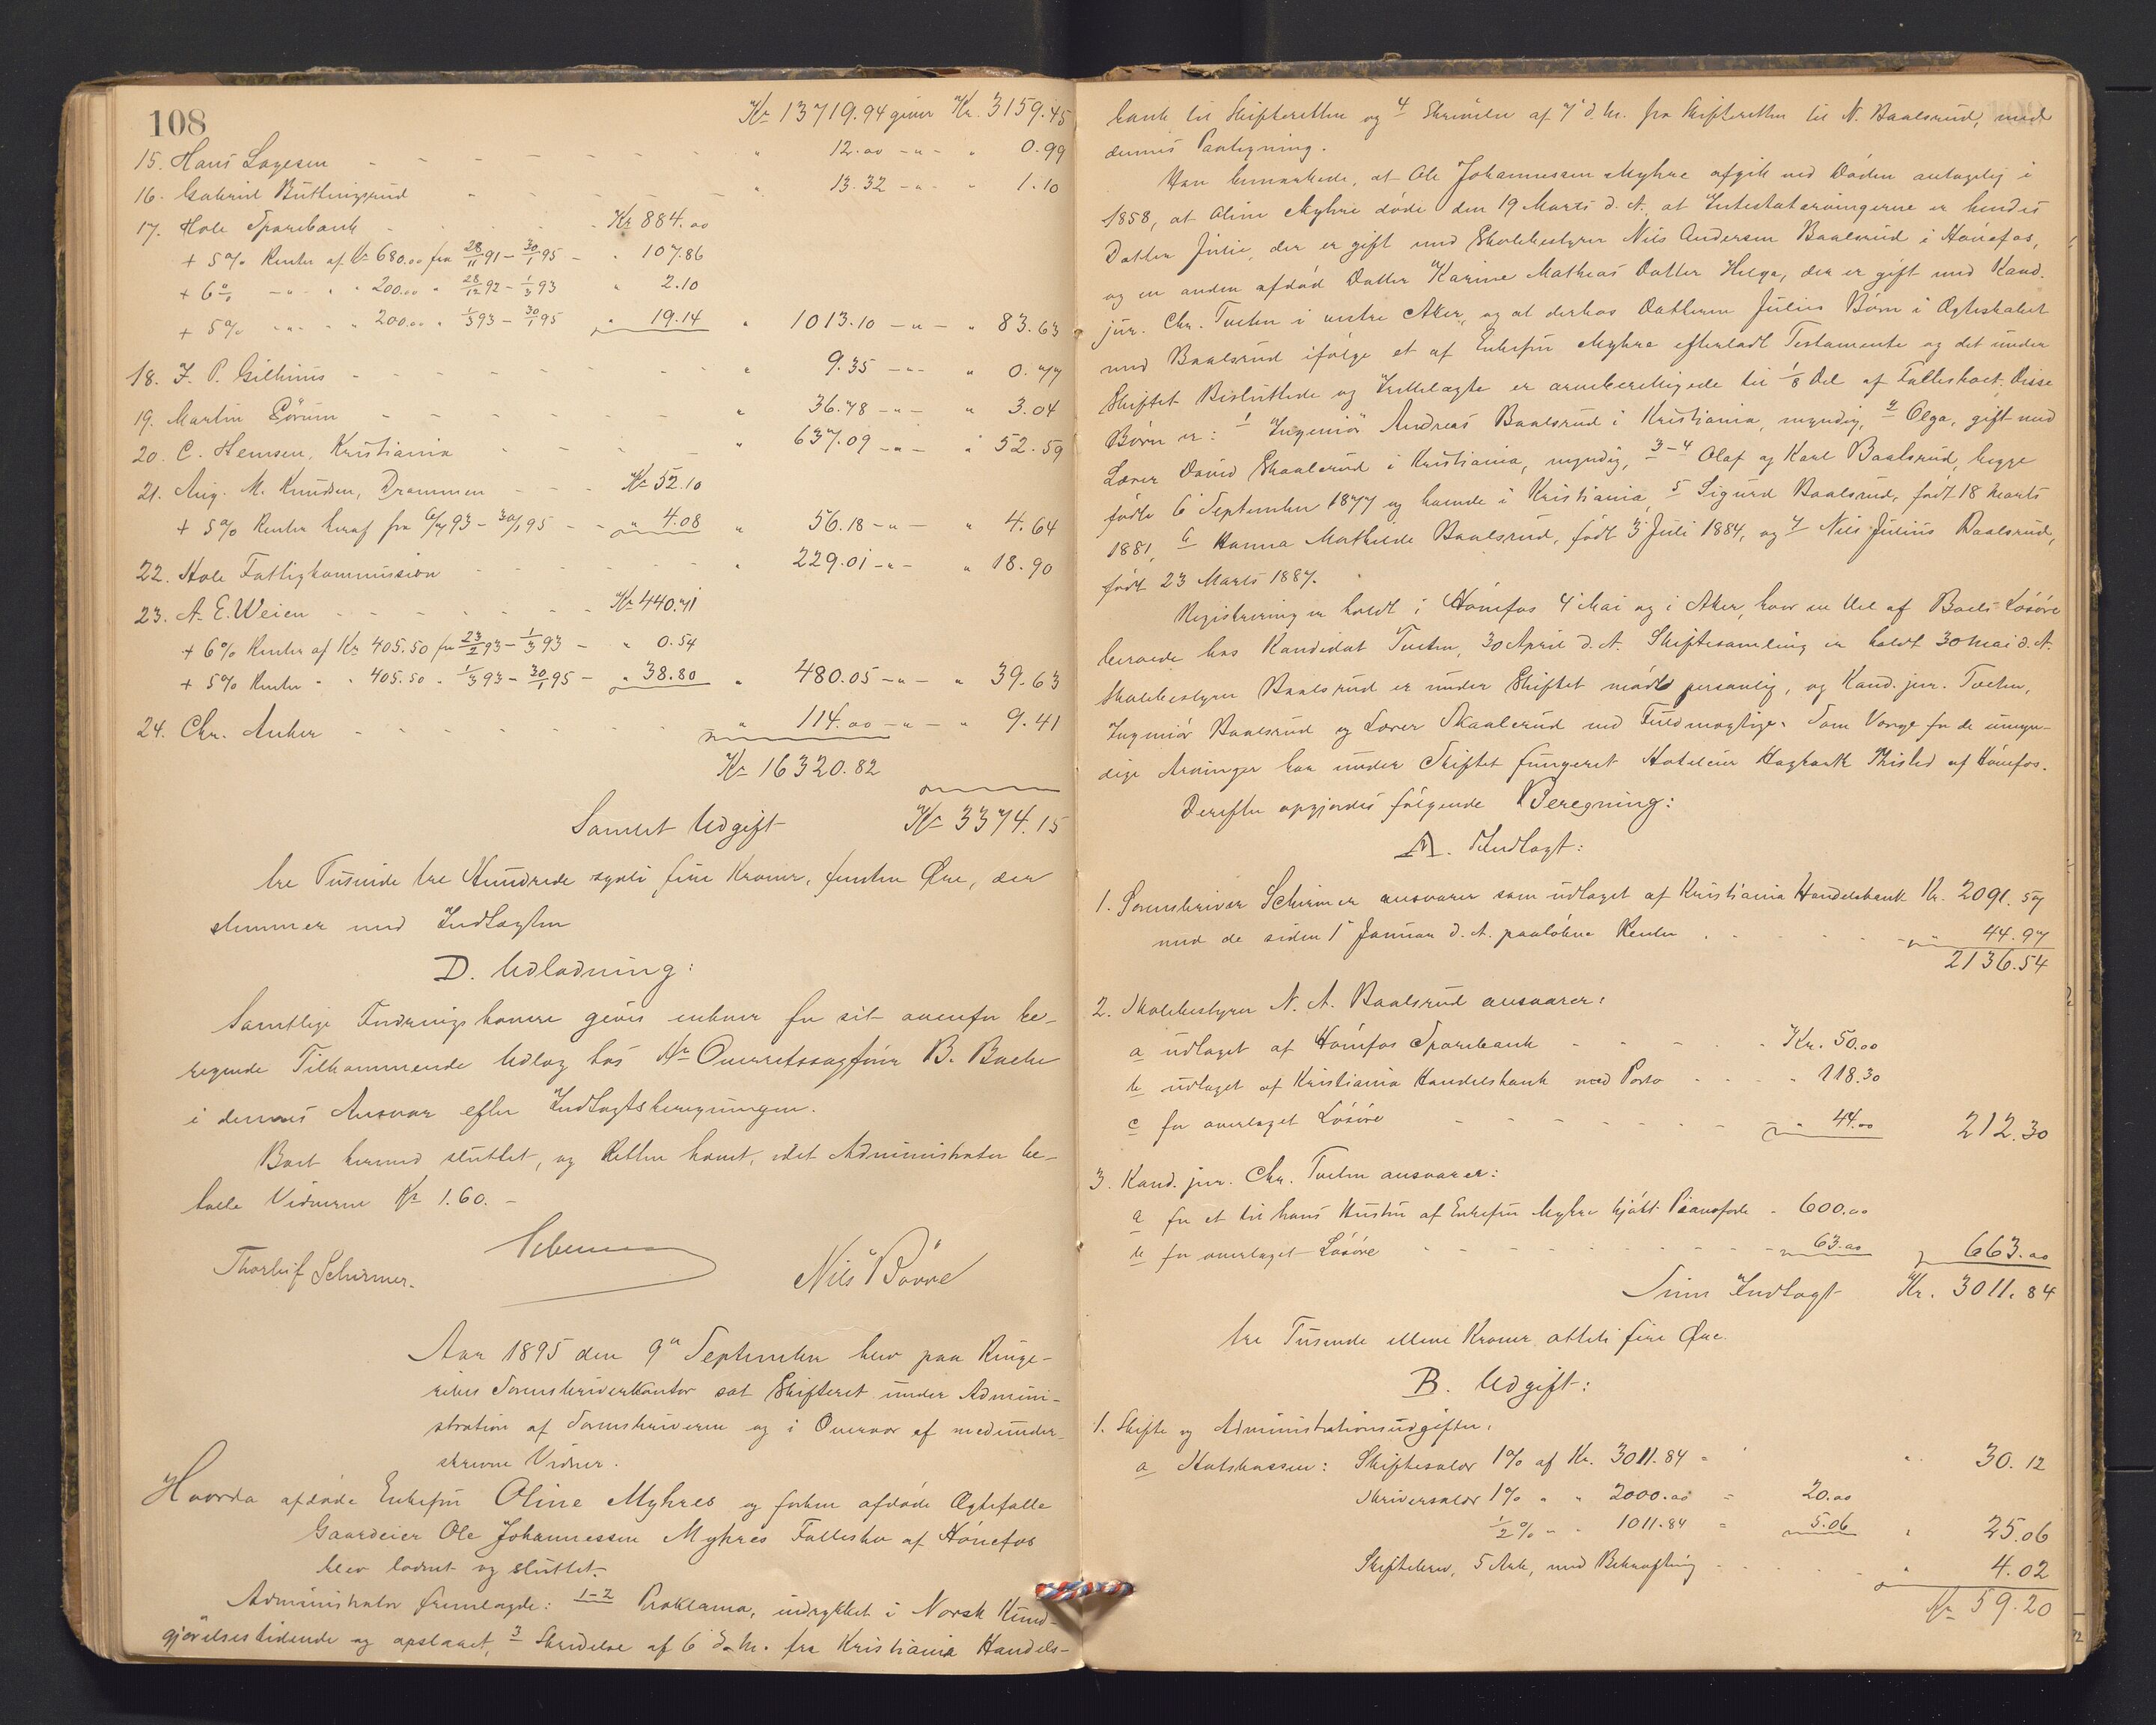 108
Kr 13719.94 giver Kr. 3159.45
15. Hans Lagesen - - - - - - - " 12.00 -"- " 0.99
16. Gabriel Büttingsrud - - - - - " 13.32 -"- " 1.10
17. Hole Sparebank - - - - Kr 884.00
+ 5% Renter af Kr 680.00 fra 28/11 91 - 30/1 95 - " 107.86
+ 6% -"- " " 200.00 " 28/12 92 - 1/3 93 " 2.10
+ 5% -"- " " 200.00 " 1/3 93 - 30/1 95 " 19.14 " 1013.10 -"- " 83.63
18. J. P. Gilhuus - - - - - - - " 9.35 -"- " 0.77
19. Martin Sørum - - - - - - " 36.78 -"- " 3.04
20. C. Hennsen, Kristiania - - - - " 637.09 -"- " 52.59
21. Aug. M. Knudsen, Drammen - - - Kr 52.10
+ 5% Renter heraf fra 6/7 93 - 30/1 95 - - " 4.08 " 56.18 -"- " 4.64
22. Hole Fattigkommission - - - - - " 229.01 -"- " 18.90
23. A. E. Weien - - - - - - Kr 440.71
+ 6% Renter af Kr 405.50 fra 23/2 93 - 1/3 93 - " 0.54
+ 5% Renter " " 405.50 " 1/3 93 - 30/1 95 - " 38.80 " 480.05 -"- " 39.63
24. Chr. Anker - - - - - - - " 114.00 -"- " 9.41
Kr 16320.82
Samlet Udgift Kr 3374.15
tre Tusinde tre Hundrede sytti fire Kroner, femten Øre, der
stemmer med Indtægten
D. Udlodning:
Samtlige Fordringshavere gives enhver for sit ovenfor be-
regnede Tilkommende Udlæg hos Hr Overretssagfører B. Bache
i dennes Ansvar efter Indtægtsberegningen.
Boet hermed sluttet, og Retten hævet, idet Administrator be-
talte Vidnerne Kr 1.60. -
Thorleif Schirmer. Schirmer Nils Bonne
Aar 1895 den 9de September blev paa Ringe-
rikes Sorenskriverkontor sat Skifteret under Admini-
stration af Sorenskriveren og i Overvær af medunder-
skrevne Vidner.
Hvorda afdøde Enkefru Oline Myhres og forhen afdøde Ægtefælle
Gaardeier Ole Johannessen Myhres Fællesbo af Hönefos
blev lodnet og sluttet.
Administrator fremlagde: 1-2 Proklama, indrykket i Norsk Kund-
gjørelsestidende og opslaaet, 3 Skrivelse af 6 d. M. fra Kristiania Handels-
bank til Skifteretten og 4 Skrivelse af 7 d. M. fra Skifteretten til N. Baalsrud, med
dennes Paategning.
Han bemærkede, at Ole Johannessen Myhre afgik ved Døden antagelig i
1858, at Oline Myhre døde den 19 Marts d. A., at Intestatarvingerne er hendes
Datter Julie, der er gift med Skolebestyrer Nils Andersen Baalsrud i Hönefos,
og en anden afdød Datter Karine Matheas Datter Helga, der er gift med Kand.
jur. Chr. Tveten i vestre Aker, og at derhos Datteren Julies Børn i Ægteskabet
med Baalsrud ifølge et af Enkefru Myhre efterladt Testamente og det under
Skiftet Besluttede og Tilkjelagte er arveberettigede til 1/8 Del af Fællesboet. Disse
Børn er: 1 Ingeniør Andreas Baalsrud i Kristiania, myndig, 2 Olga, gift med
Lærer David Skaalerud i Kristiania, myndig, 3-4 Olaf og Karl Baalsrud, begge
fødte 6 September 1877 og boende i Kristiania, 5 Sigurd Baalsrud, født 18 Marts
1881, 6 Hanna Mathilde Baalsrud, født 3 Juli 1884, og 7 Nils Julius Baalsrud,
født 23 Marts 1887.
Registrering er holdt i Hönefos 4 Mai og i Aker, hvor en Del af Boets Løsøre
beroede hos Kandidat Tveten, 30 April d. A. Skiftesamling er holdt 30 Mai d. A.
Skolebestyrer Baalsrud er under Skiftet mødt personlig, og Kand. jur. Tveten,
Ingeniør Baalsrud og Lærer Skaalerud ved Fuldmægtige. Som Værge for de umyn-
dige Arvinger har under Skiftet fungeret Hoteleier Haghank Thisled af Hönefos.
Derefter opgjordes følgende Beregning:
A. Indtægt:
1. Sorenskriver Schirmer ansvarer som udtaget af Kristiania Handelsbank Kr. 2091.57
med de siden 1 Januar d. A. paaløbne Renter - - - - - " 44.97
2136.54
2. Skolebestyrer N. A. Baalsrud ansvarer:
a udtaget af Hönefos Sparebank - - - - Kr. 50.00
b udtaget af Kristiania Handelsbank med Porto - - - " 118.30
c for overtaget Løsøre - - - - - - - " 44.00 212.30
3. Kand. jur. Chr. Tveten ansvarer:
a for et til hans Hustru af Enkefru Myhre kjøbt Pianoforte - 600.00
b for overtaget Løsøre - - - - - - - " 63.00 " 663.00
Sum Indtægt Kr. 3011.84
tre Tusende elleve Kroner otteti fire Øre.
B. Udgift:
1. Skifte og Administrationsudgifter.
a Statskassen: Skiftesalær 1% af Kr. 3011.84 = " 30.12
Skriversalær 1% " " 2000.00 = 20.00
1/2 % " " 1011.84 = 5.06 " 25.06
Skiftebrev, 5 Ark, med Bekræftning - - - - " 4.02
Kr 59.20